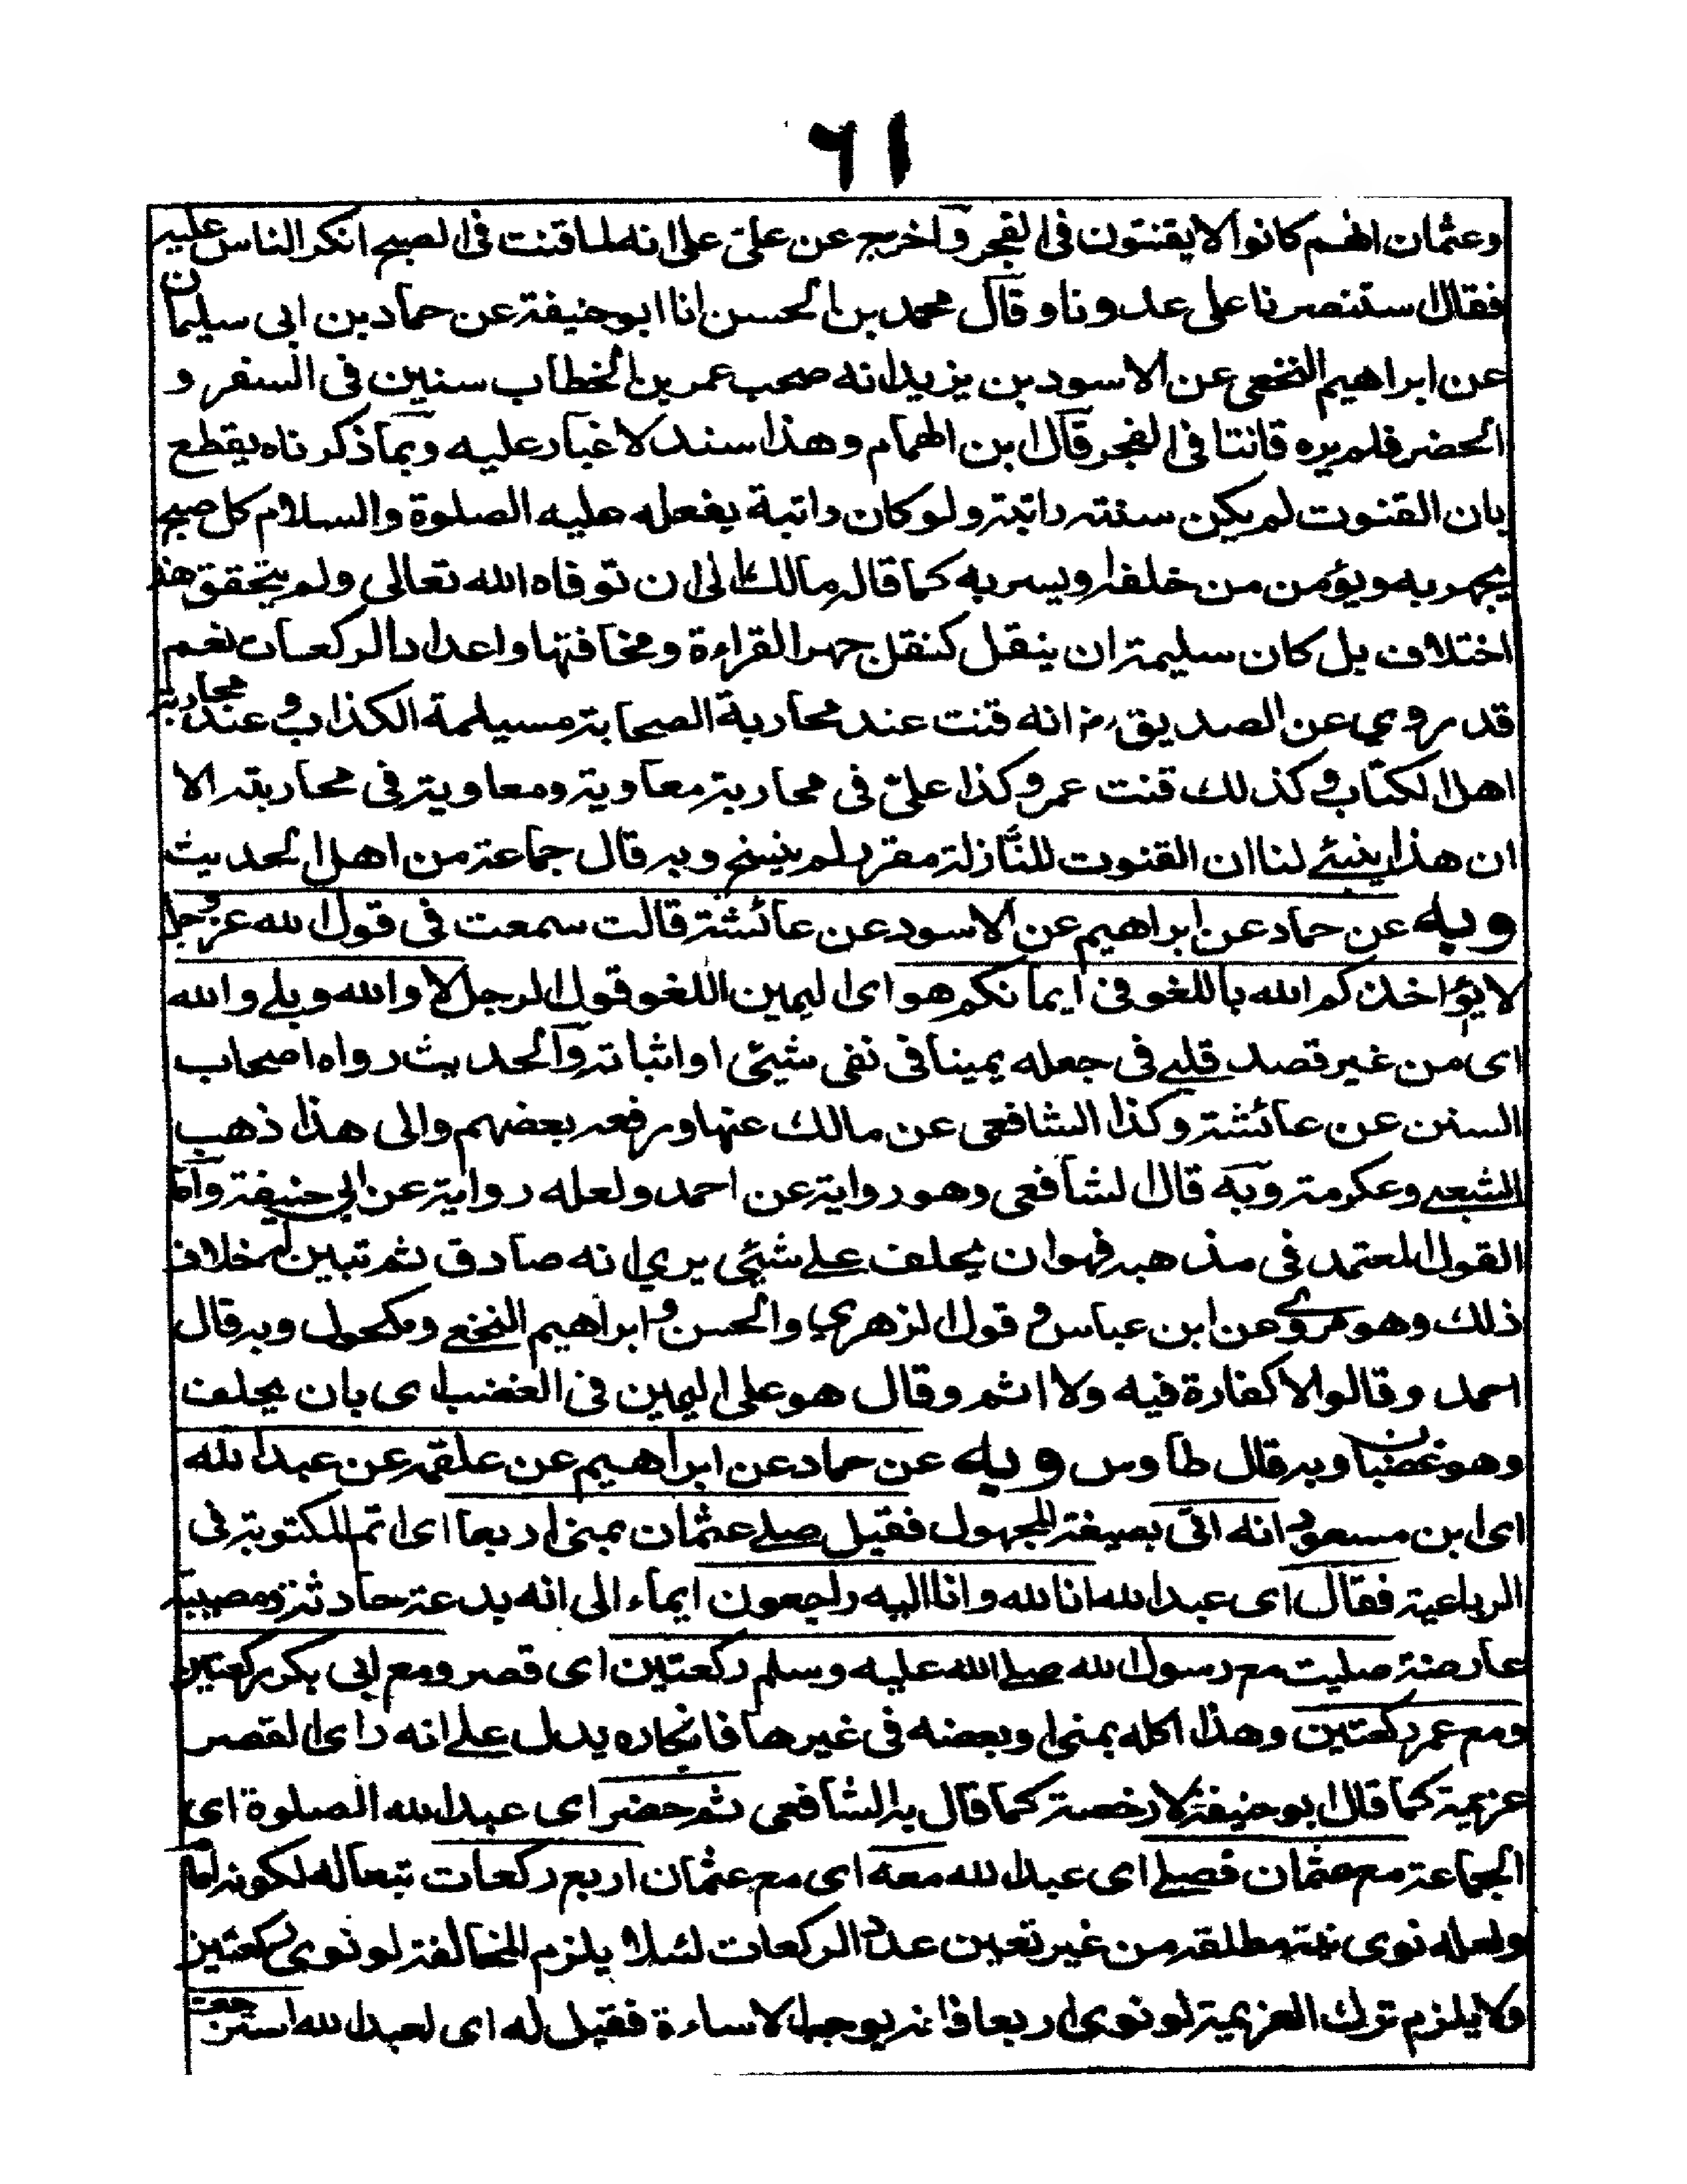 ٦١
وعثمان انهم كانوا لا يقنتون فى الفجر واخرج عن على على انه لما قنت فى الصبح انكر الناس عليه
فقال استنصرنا على عدونا وقال محمد بن الحسن انا ابو حنيفة عن حماد بن ابى سليمان
عن ابراهيم النخعى عن الاسود بن يزيد انه صحب عمر بن الخطاب سنين فى السفر و
الحضر فلم يره قانتا فى الفجر قال ابن الهمام وهذا سند لا غبار عليه وبما ذكرناه يقطع
بان القنوت لم يكن سنته راتبة ولو كان راتبة يفعله عليه الصلوة والسلام كل صبح
يجهر به ويؤمن من خلفه او يسر به كما قال مالك الى ان توفاه الله تعالى ولم يتحقق هذا
اختلاف بل كان سليمة ان ينقل كنقل جهر القراءة ومخافتها واعداد الركعات نعم
قد روي عن الصديق رض انه قنت عند محاربة الصحابة مسيلمة الكذاب وعند محاربة
اهل الكتاب وكذلك قنت عمر وكذا على فى محاربة معاوية ومعاوية فى محاربته الا
ان هذا ينبئ لنا ان القنوت للنازلة مقرر لم ينسخ وبه قال جماعة من اهل الحديث
وبه عن حماد عن ابراهيم عن الاسود عن عائشة قالت سمعت فى قول الله عز وجل
لا يؤاخذكم الله باللغو فى ايمانكم هو اى اليمين اللغو قول الرجل لا والله وبلى والله
اى من غير قصد قلبى فى جعله يمينا فى نفى شيئى او اثباته والحديث رواه اصحاب
السنن عن عائشة وكذا الشافعى عن مالك عنها ورفعه بعضهم والى هذا ذهب
الشعبى وعكرمة وبه قال الشافعى وهو رواية عن احمد ولعله رواية عن ابى حنيفة واما
القول المعتمد فى مذهبه فهو ان يحلف على شيئى يرى انه صادق ثم تبين له خلاف
ذلك وهو مروى عن ابن عباس وقول الزهري والحسن وابراهيم النخعى ومكحول وبه قال
احمد وقالوا لا كفارة فيه ولا اثم وقال هو على اليمين فى الغضب اى بان يحلف
وهو غضبان وبه قال طاوس وبه عن حماد عن ابراهيم عن علقمة عن عبد الله
اى ابن مسعود انه اتى بصيغة المجهول فقيل صلى عثمان بمنى اربعا اى اتم المكتوبة فى
الرباعية فقال اى عبد الله انا لله وانا اليه راجعون ايماء الى انه بدعة حادثة ومصيبة
عارضة صليت مع رسول الله صلى الله عليه وسلم ركعتين اى قصر ومع ابى بكر ركعتين
ومع عمر ركعتين وهذا كله بمنى او بعضه فى غيرها فانكاره يدل على انه راى القصر
عزيمة كما قال ابو حنيفة لا رخصة كما قال به الشافعى ثم حضر اى عبد الله الصلوة اى
الجماعة مع عثمان فصلى اى عبد الله معه اى مع عثمان اربع ركعات تبعا له لكونه اماما
ولعله نوى نية مطلقه من غير تعين عدد الركعات لئلا يلزم المخالفة لو نوى ركعتين
ولا يلزم ترك العزيمة لو نوى اربعا فانه يوجب الاساءة فقيل له اى لعبد الله استرجعت